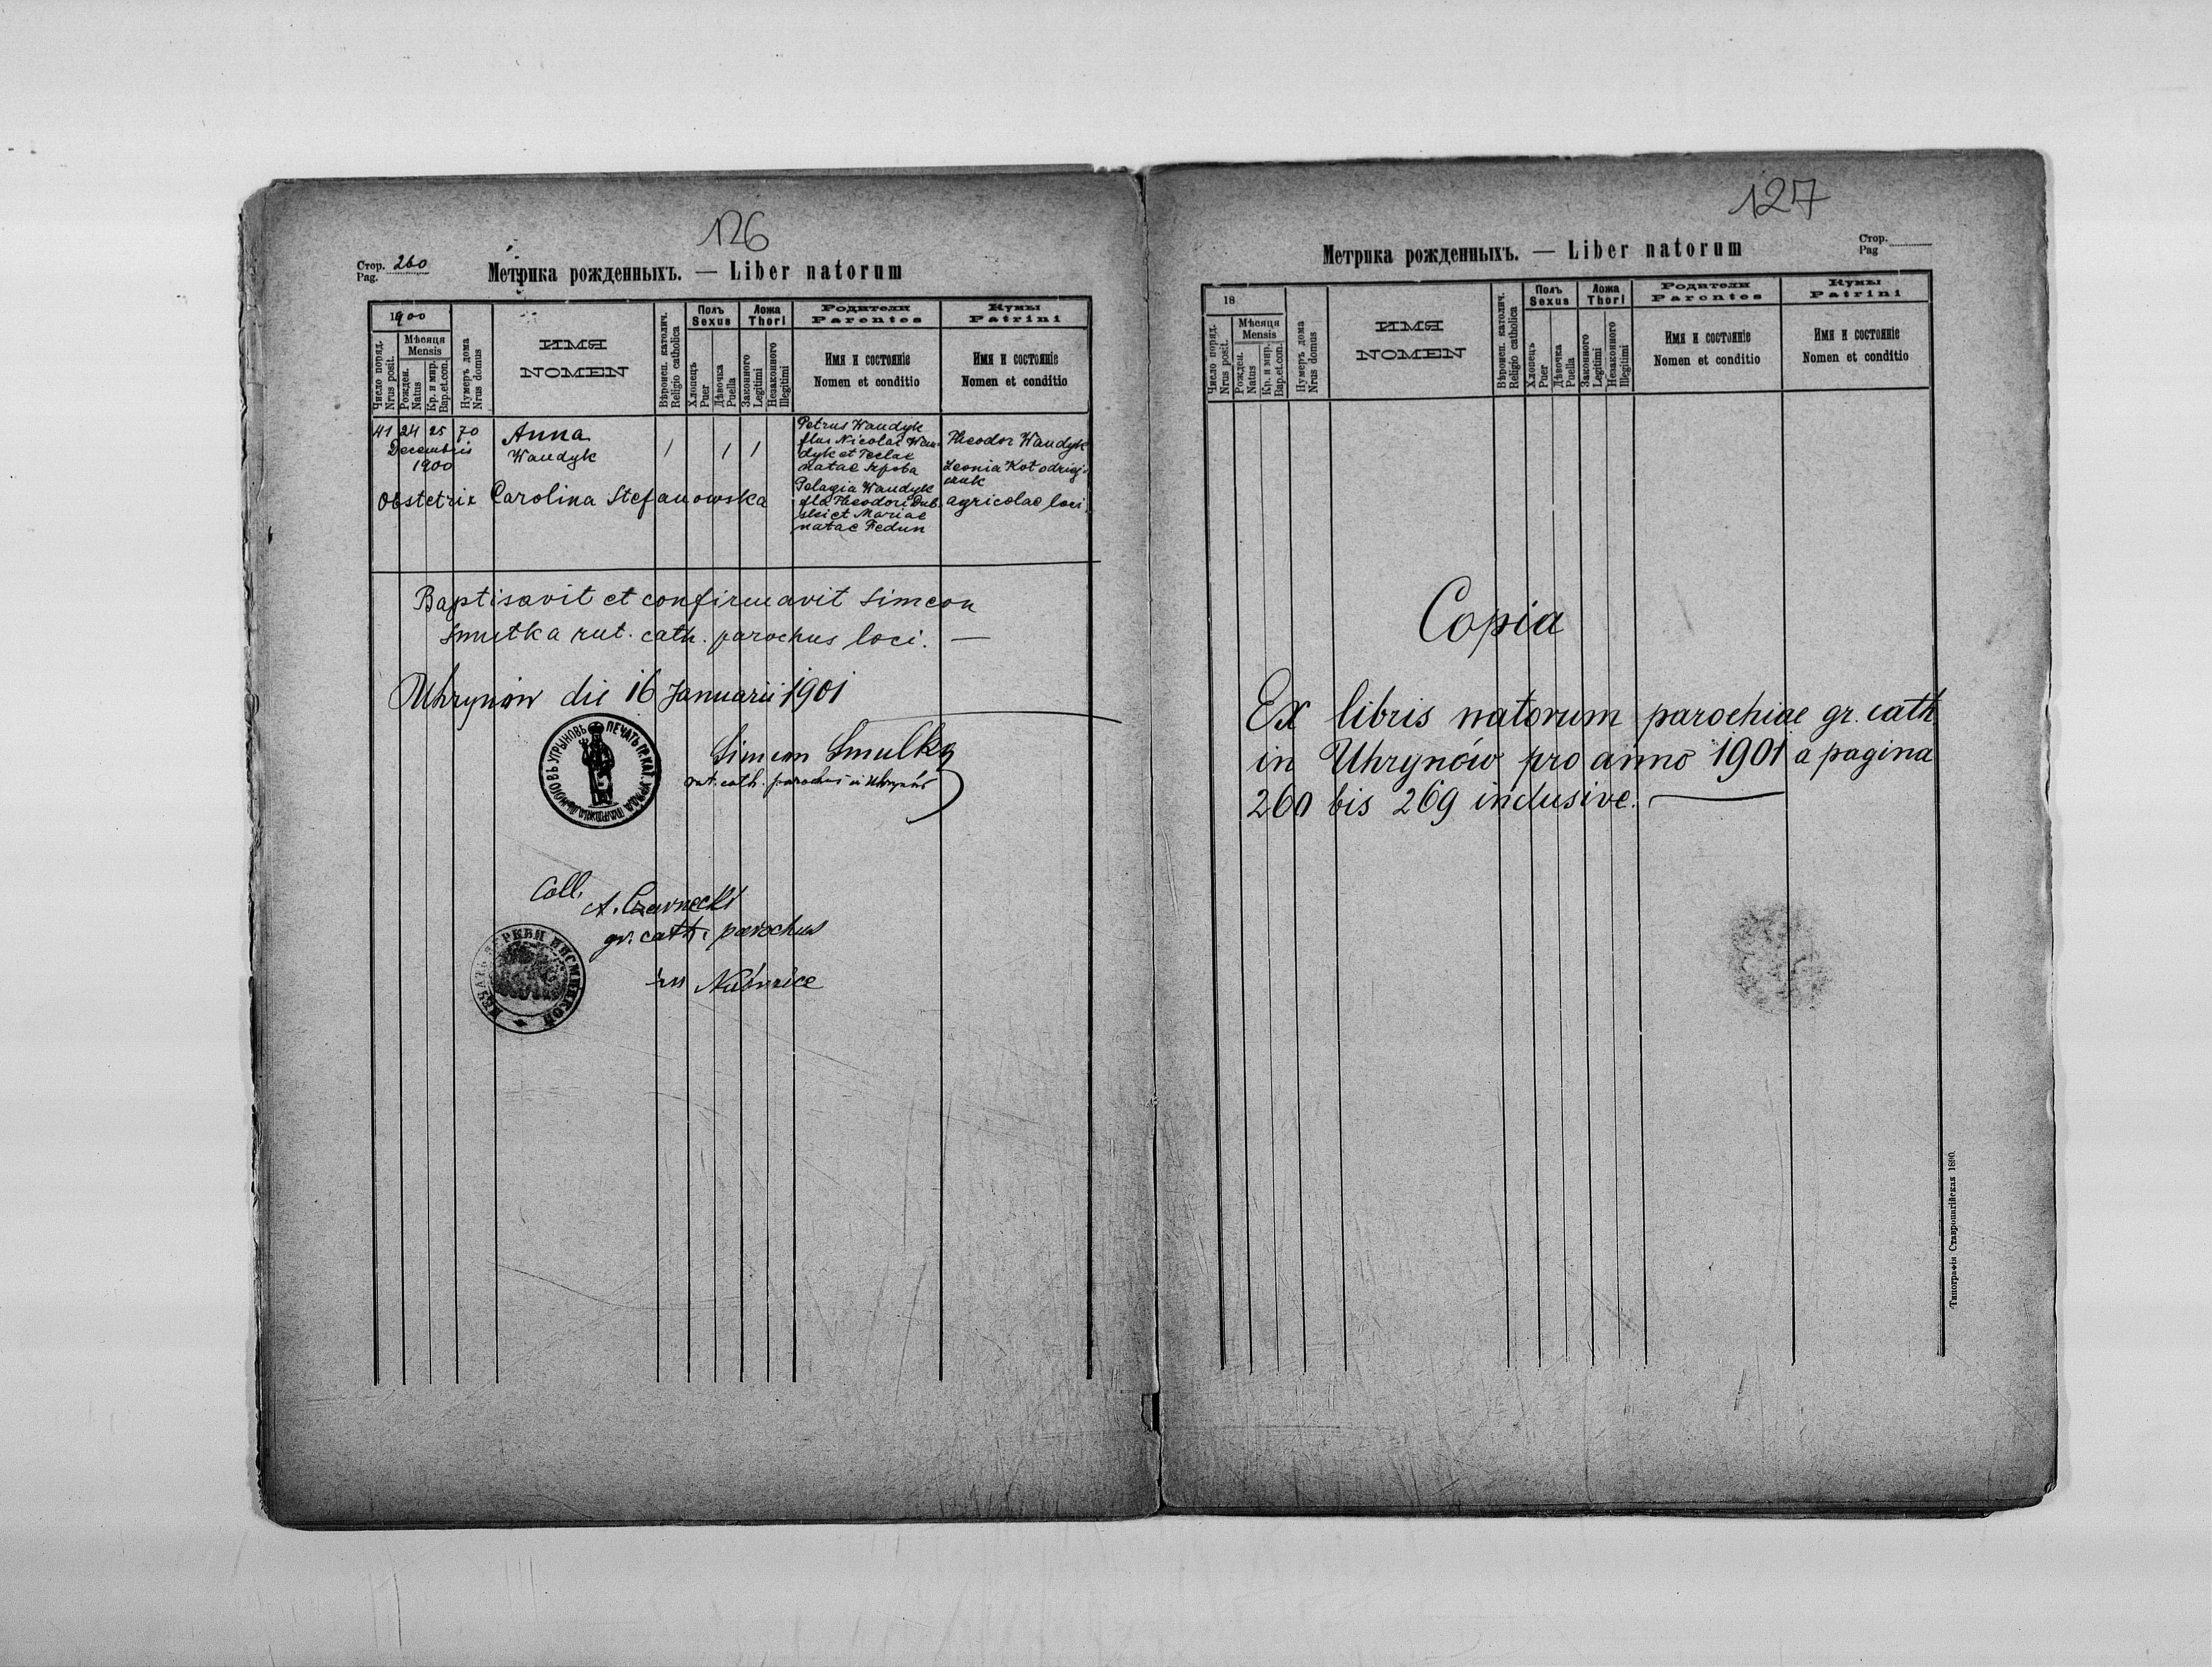 126
Стор. 260
Pag.
Метрика рожденныхъ. — Liber natorum
1900
Число поряд.
Nrus posit.
Мѣсяця
Mensis
Рожден.
Natus
Кр. и мир.
Bap.et.con.
Нумеръ дома
Nrus domus
ИМЯ
NOMEN
Вѣроисп. католич.
Religio catholica
Полъ
Sexus
Хлопецъ
Puer
Дѣвочка
Puella
Ложа
Thori
Законного
Legitimi
Незаконного
Illegitimi
Родители
Parentes
Имя и состояніе
Nomen et conditio
Кумы
Patrini
Имя и состояніе
Nomen et conditio
41 24 25 70
Decembris
1900
Anna
Wandyk
/ / /
Petrus Wandyk
flus Nicolai Wan-
dyk et Teclae
natae
Pelagia Wandyk
fla Theodori Dub
ski et Mariae
natae Fedun
Theodor Wandyk
Xenia Kotodziej-
czuk
agricolae loci.
Obstetrix Carolina Stefanowska
Baptisavit et confirmavit Simeon
Smulka rut. cath. parochus loci. —
Uhrynów die 16 Januarii 1901
Simeon Smulka
rut. cath. parochus in Uhrynów
ПЕЧАТЬ ГР. КАТ. УРЯДА ПАРОХІАЛЬНОГО ВЪ УГРЫНОВЪ
Coll.
A. Czarnecki
gr. cath. parochus
in
127
Стор.
Pag
Метрика рожденныхъ. — Liber natorum
18
Число поряд.
Nrus posit.
Мѣсяця
Mensis
Рожден.
Natus
Кр. и мир.
Bap.et.con.
Нумеръ дома
Nrus domus
ИМЯ
NOMEN
Вѣроисп. католич.
Religio catholica
Полъ
Sexus
Хлопецъ
Puer
Дѣвочка
Puella
Ложа
Thori
Законного
Legitimi
Незаконного
Illegitimi
Родители
Parentes
Имя и состояніе
Nomen et conditio
Кумы
Patrini
Имя и состояніе
Nomen et conditio
Copia
Ex libris natorum parochiae gr. cath.
in Uhrynów pro anno 1901 a pagina
260 bis 269 inclusive.
Типографія Ставропигійская 1890.